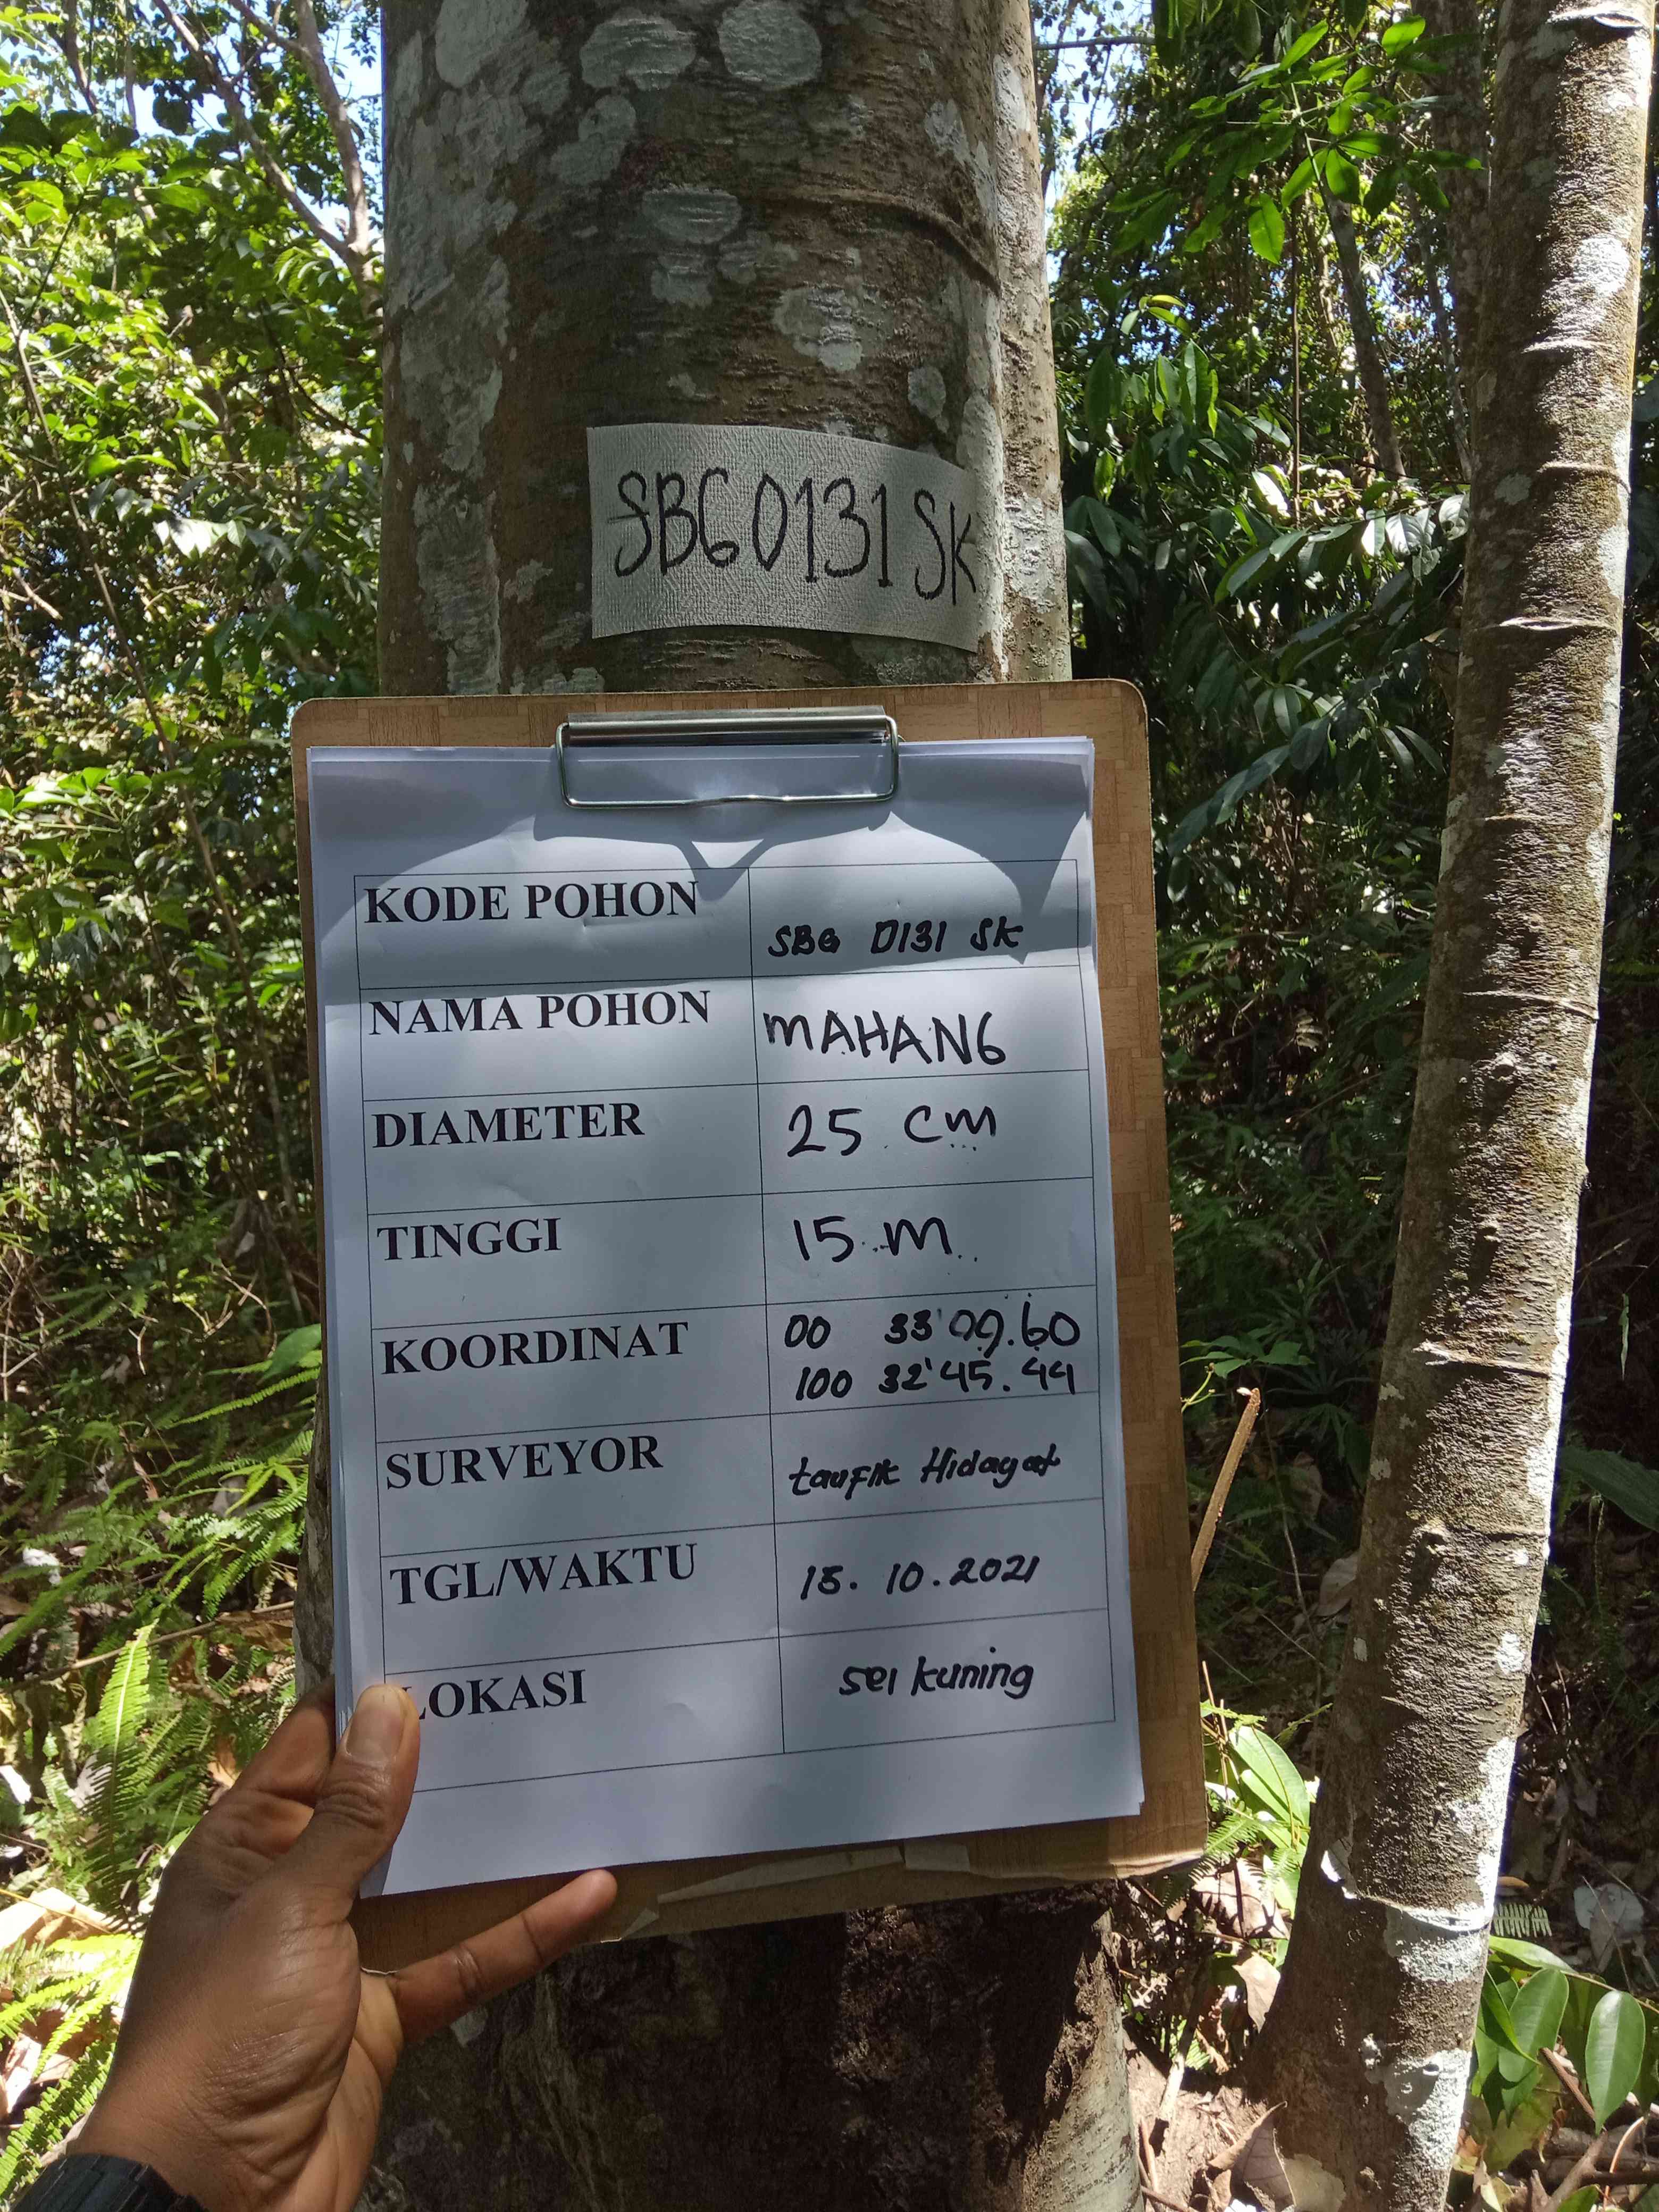 SBG 0131 SK
KODE POHON SBG 0131 SK
NAMA POHON MAHANG
DIAMETER 25 cm
TINGGI 15 m
KOORDINAT 00 33'09.60
100 32'45.44
SURVEYOR taufik Hidayat
TGL/WAKTU 18.10.2021
LOKASI sei kuning